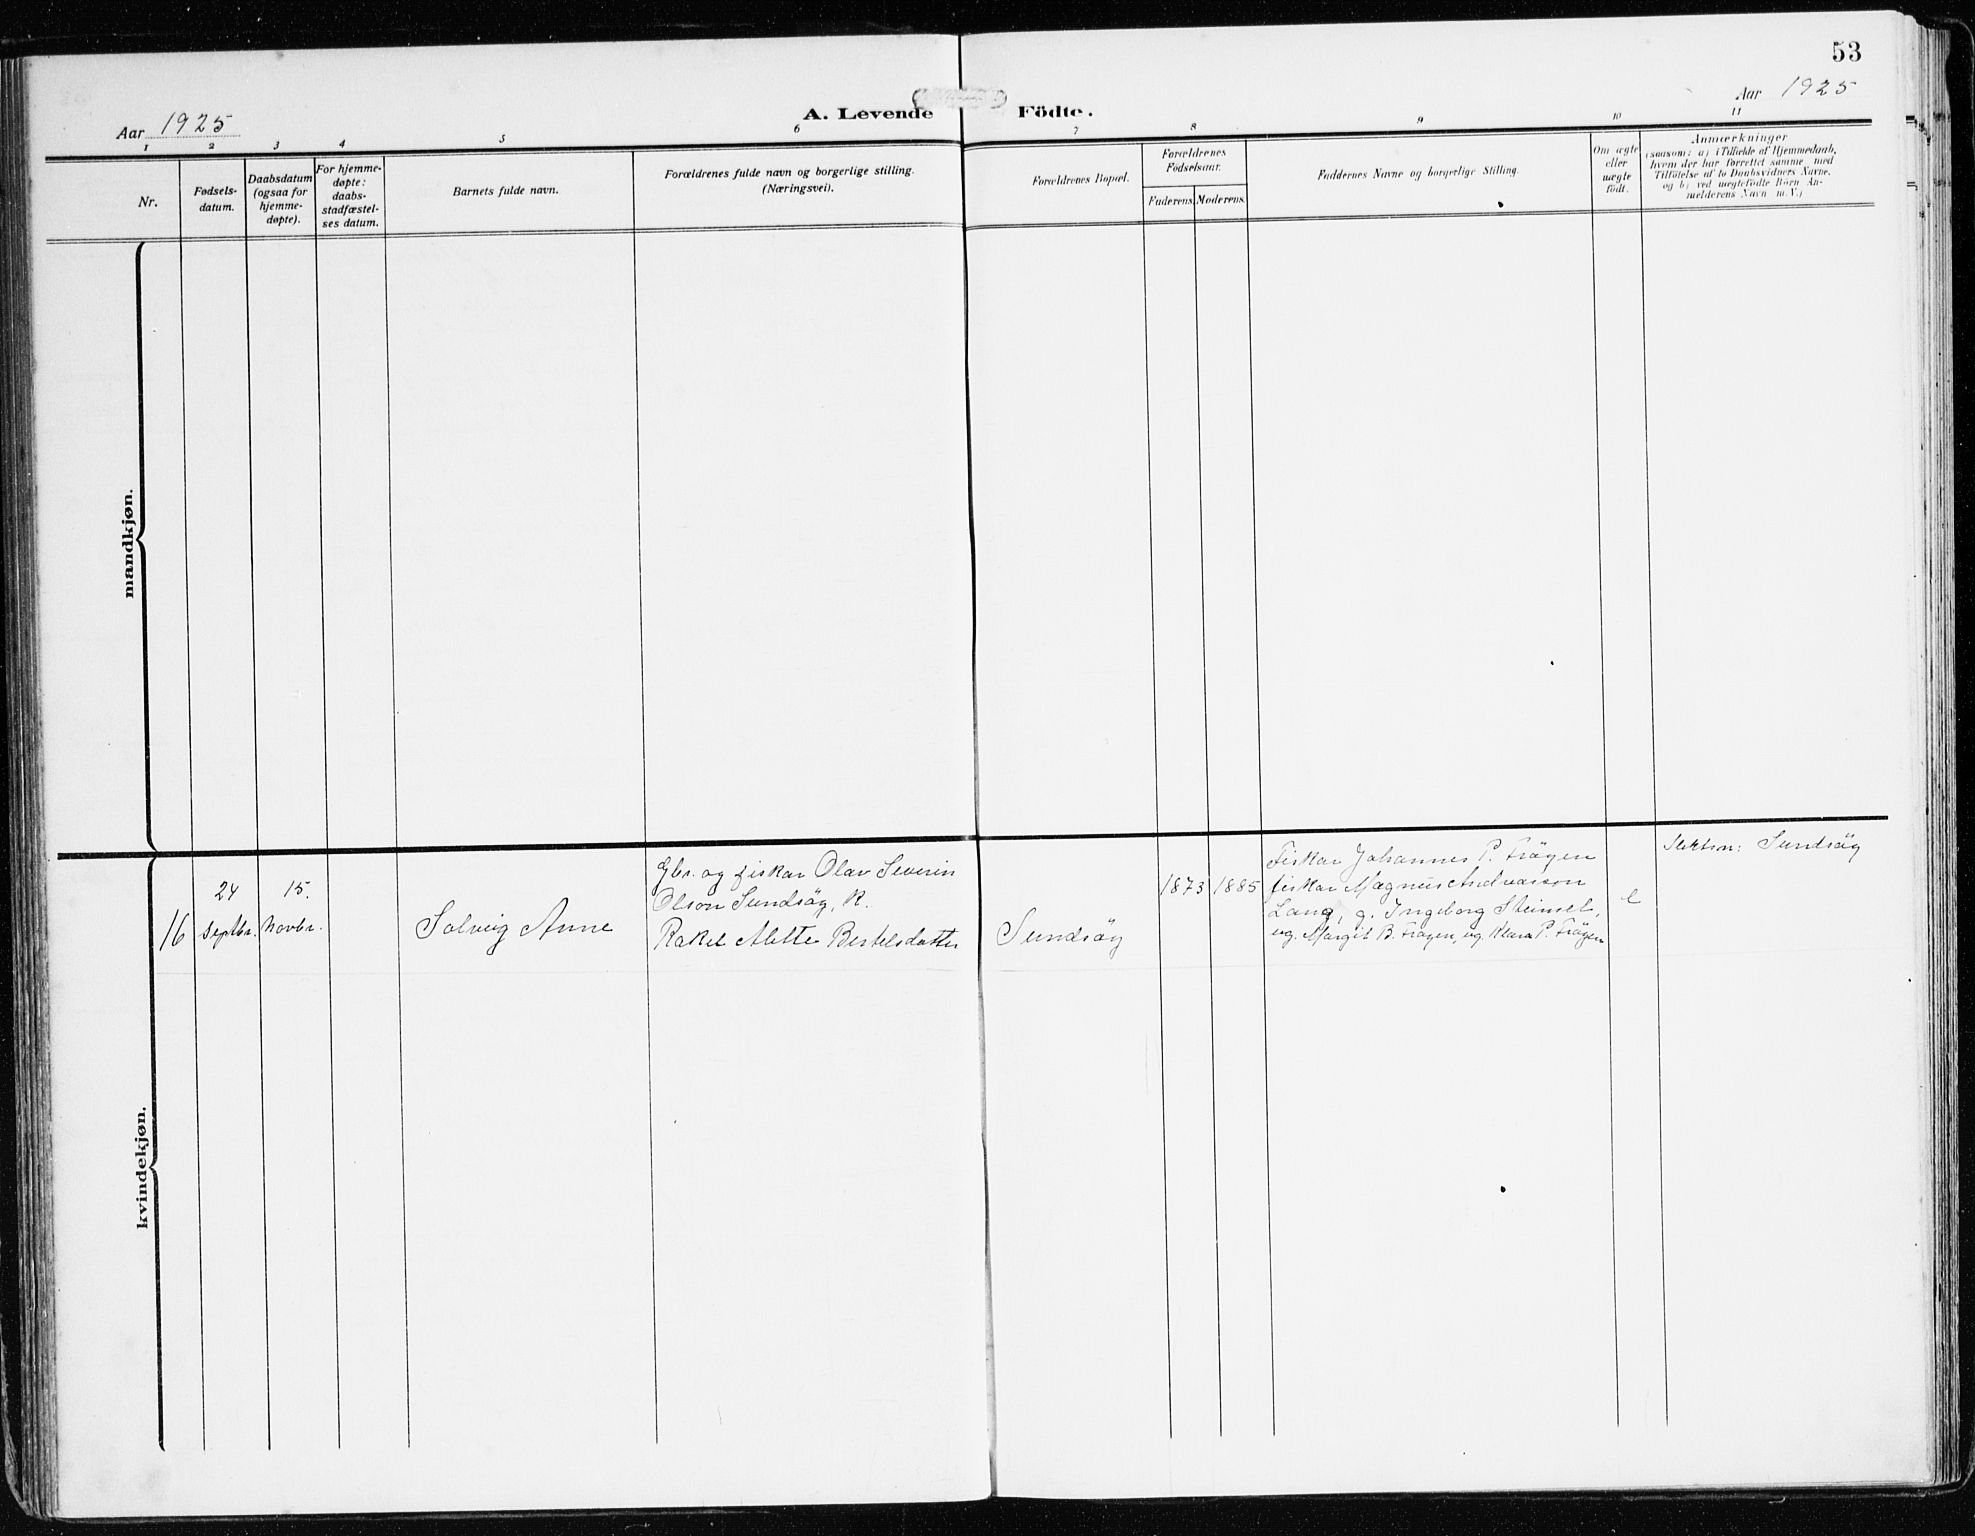 53
Aar 1925
A. Levende Födte.
Aar 1925
1 2 3 4 5 6 7 8 9 10 11
Nr.
Fødsels-
datum.
Daabsdatum
(ogsaa for
hjemme-
døpte).
For hjemme-
døpte:
daabs-
stadfæstel-
ses datum.
Barnets fulde navn.
Forældrenes fulde navn og borgerlige stilling.
(Næringsvei).
Forældrenes Bopæl.
Forældrenes
Födselsaar.
Faderens. Moderens.
Faddernes Navne og borgerlige Stilling.
Om ægte
eller
uægte
født.
Anmærkninger
(saasom: a) i Tilfælde af Hjemmedaab,
hvem der har forrettet samme, med
Tilföielse af to Daabsvidners Navne,
og b) ved uægtefödte Börn An-
melderens Navn m.V.)
mandkjøn.
kvindekjøn.
16
24
Septbr.
15.
Novbr.
Solveig Anne
Gbr. og fiskar Olav Severin
Olson Sundsöy, K.
Rakel Mette Bertelsdatter
Sundsöy
1873
1885
Fiskar Johannes P. Fröyen
fiskar Magnus Andreasson
Lang, g. Ingeborg Steinset,
ug. Margit B. Fröyen, ug. Klara P. Fröyen
e
Sundsöy